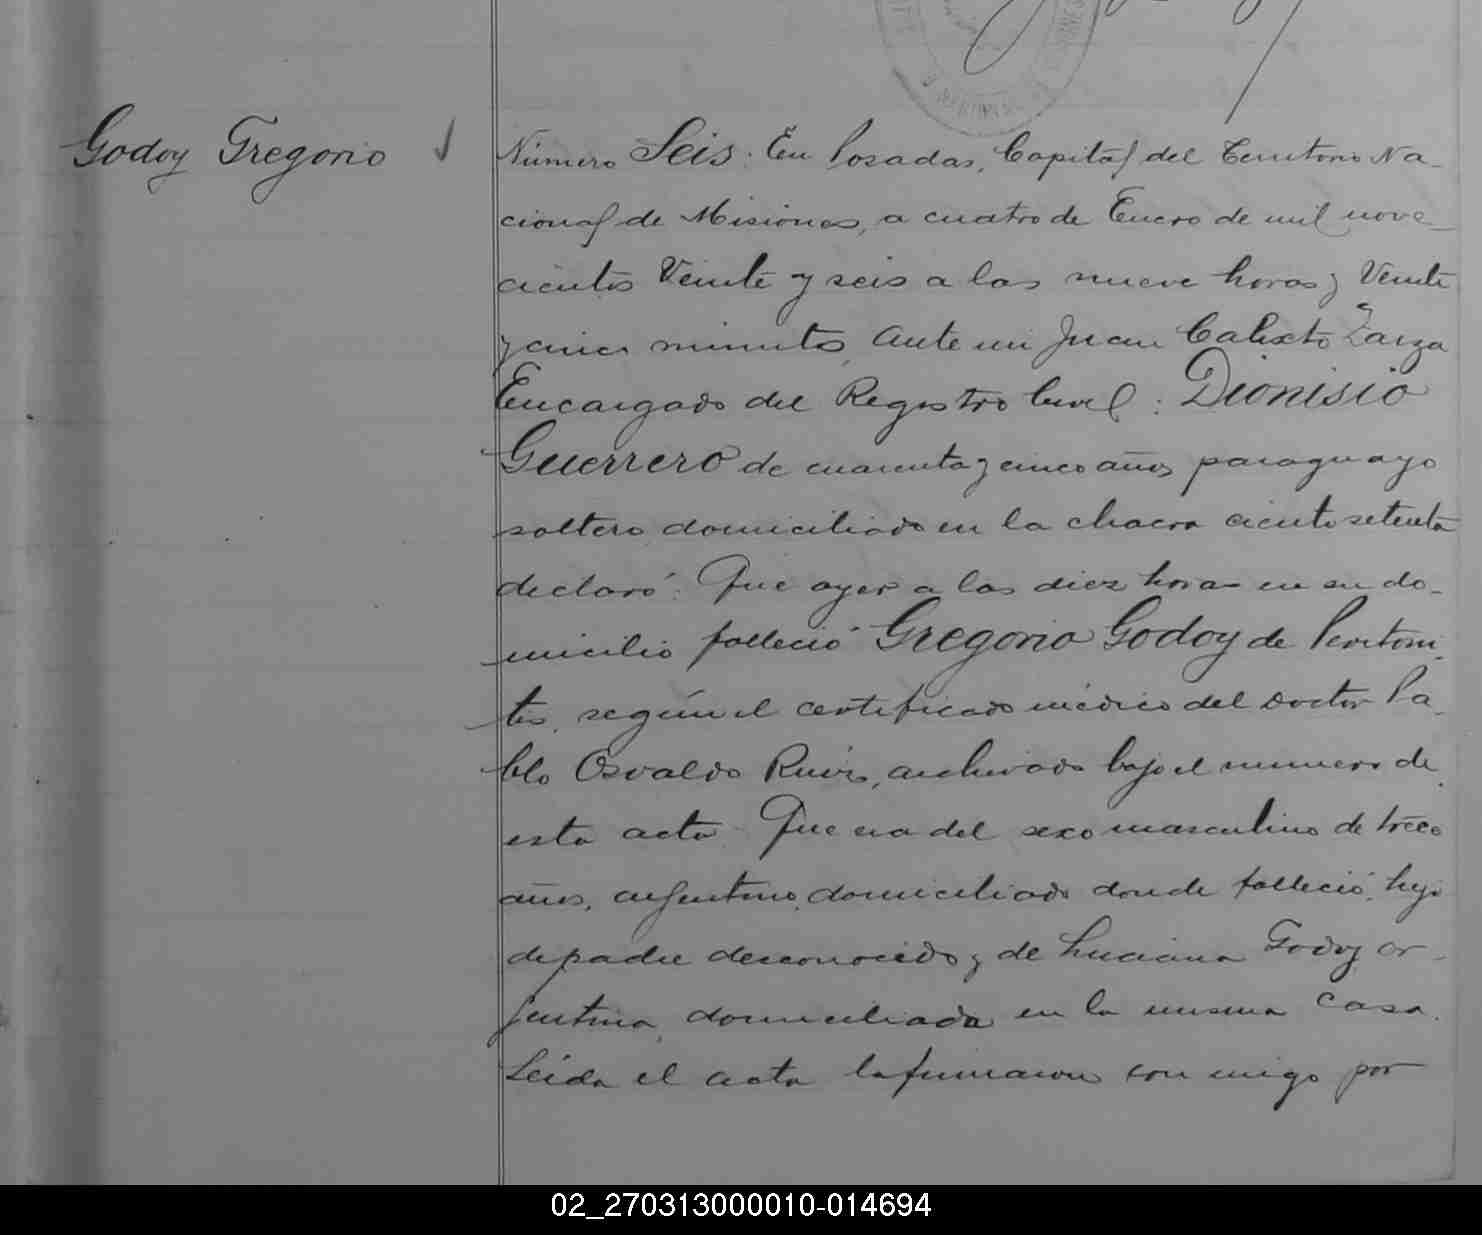 Godoy Gregorio
Número Seis. En Posadas, Capital del Territorio Na-
cional de Misiones, a cuatro de Enero de mil nove-
cientos Veinte y seis a las nueve horas y Veinte
y cinco minutos, ante mi Juan Calixto Zarza
Encargado del Registro Civil: Dionisio
Guerrero de cuarenta y cinco años, paraguayo
soltero domiciliado en la chacra ciento setenta
declaró: Que ayer a las diez horas en su do-
micilio falleció Gregorio Godoy de Peritoni-
tis, según el certificado médico del Doctor Pa-
blo Osvaldo Ruiz, archivado bajo el numero de
esta acta. Que era del sexo masculino de trece
años, argentino, domiciliado donde falleció, hijo
de padre desconocido y de Luciana Godoy ar-
gentina, domiciliada en la misma casa.
Leida el acta la firmaron con migo por
02_270313000010-014694